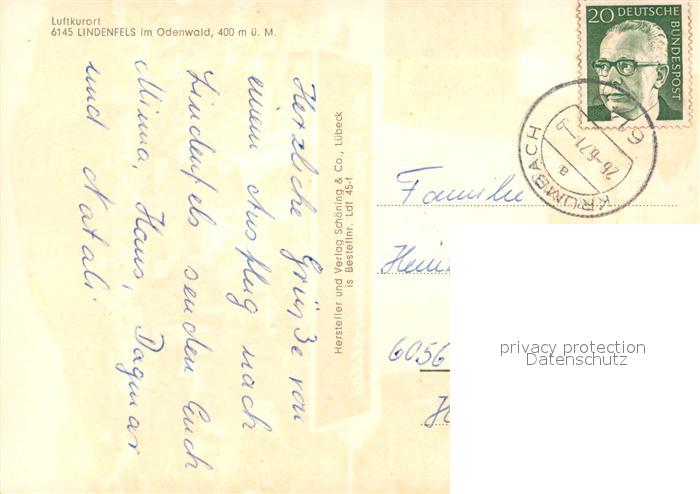 Luftkurort
6145 LINDENFELS im Odenwald, 400 m ü. M.
Herzliche Grüße von
einem Ausflug nach
Lindenfels senden Euch
Minna, Hans, Dagmar
und Natali.
Hersteller und Verlag Schöning & Co., Lübeck
is Bestellnr. Ldf 45-1
20 DEUTSCHE
BUNDESPOST
26.-6.71-9
a
KRUMBACH
Familie
6056
privacy protection
Datenschutz